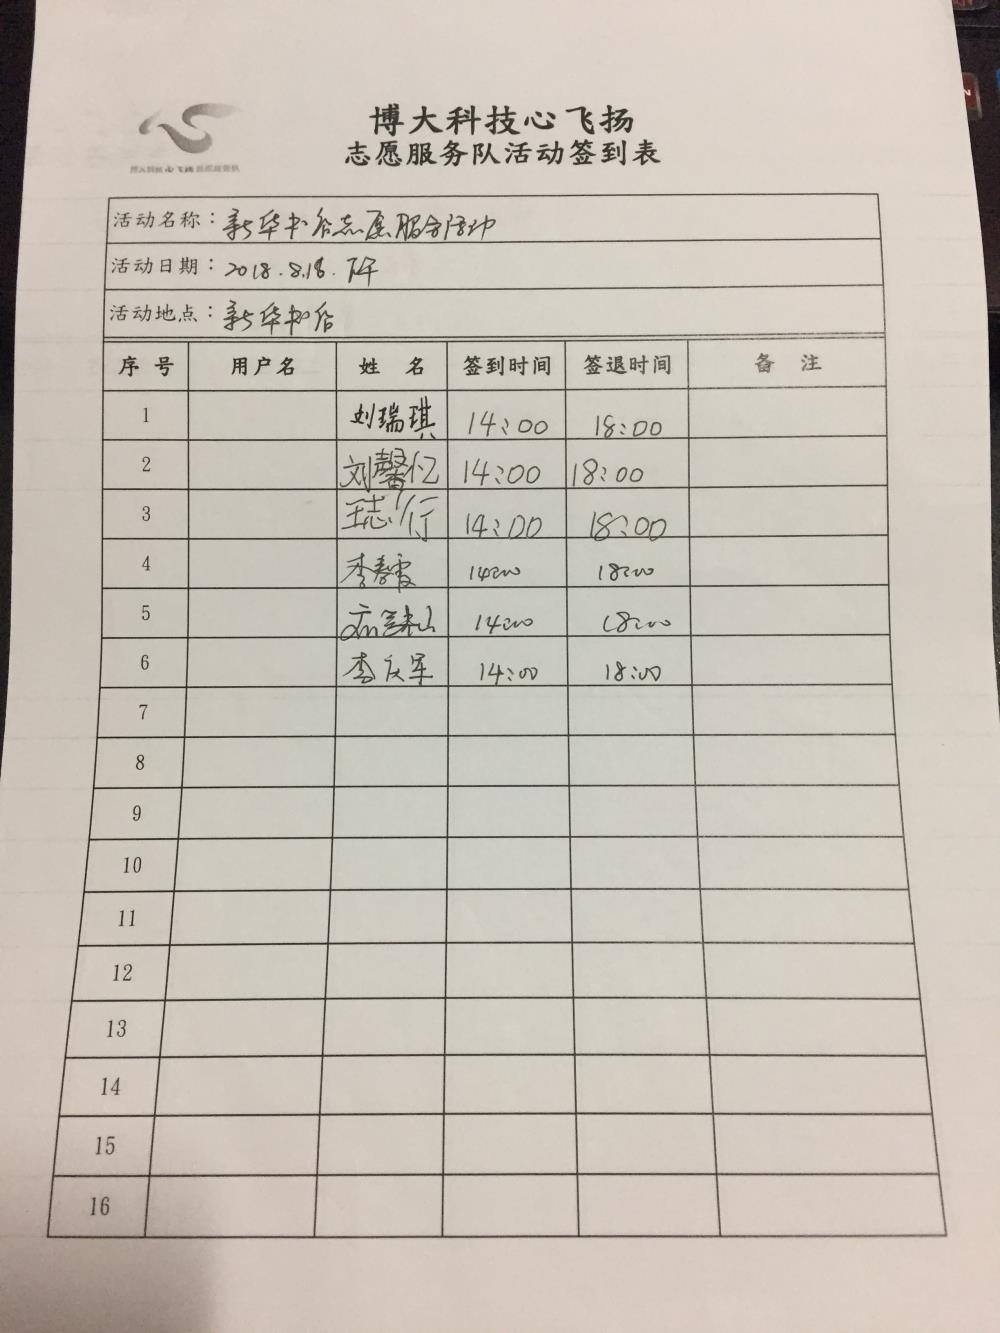 博大科技心飞扬
志愿服务队活动签到表
活动名称：新华书店志愿服务活动
活动日期：2018.8.18.下午
活动地点：新华书店
序号 用户名 姓名 签到时间 签退时间 备注
1 刘瑞琪 14:00 18:00
2 刘馨亿 14:00 18:00
3 王志行 14:00 18:00
4 李春霞 14:00 18:00
5 14:00 18:00
6 李庆军 14:00 18:00
7
8
9
10
11
12
13
14
15
16